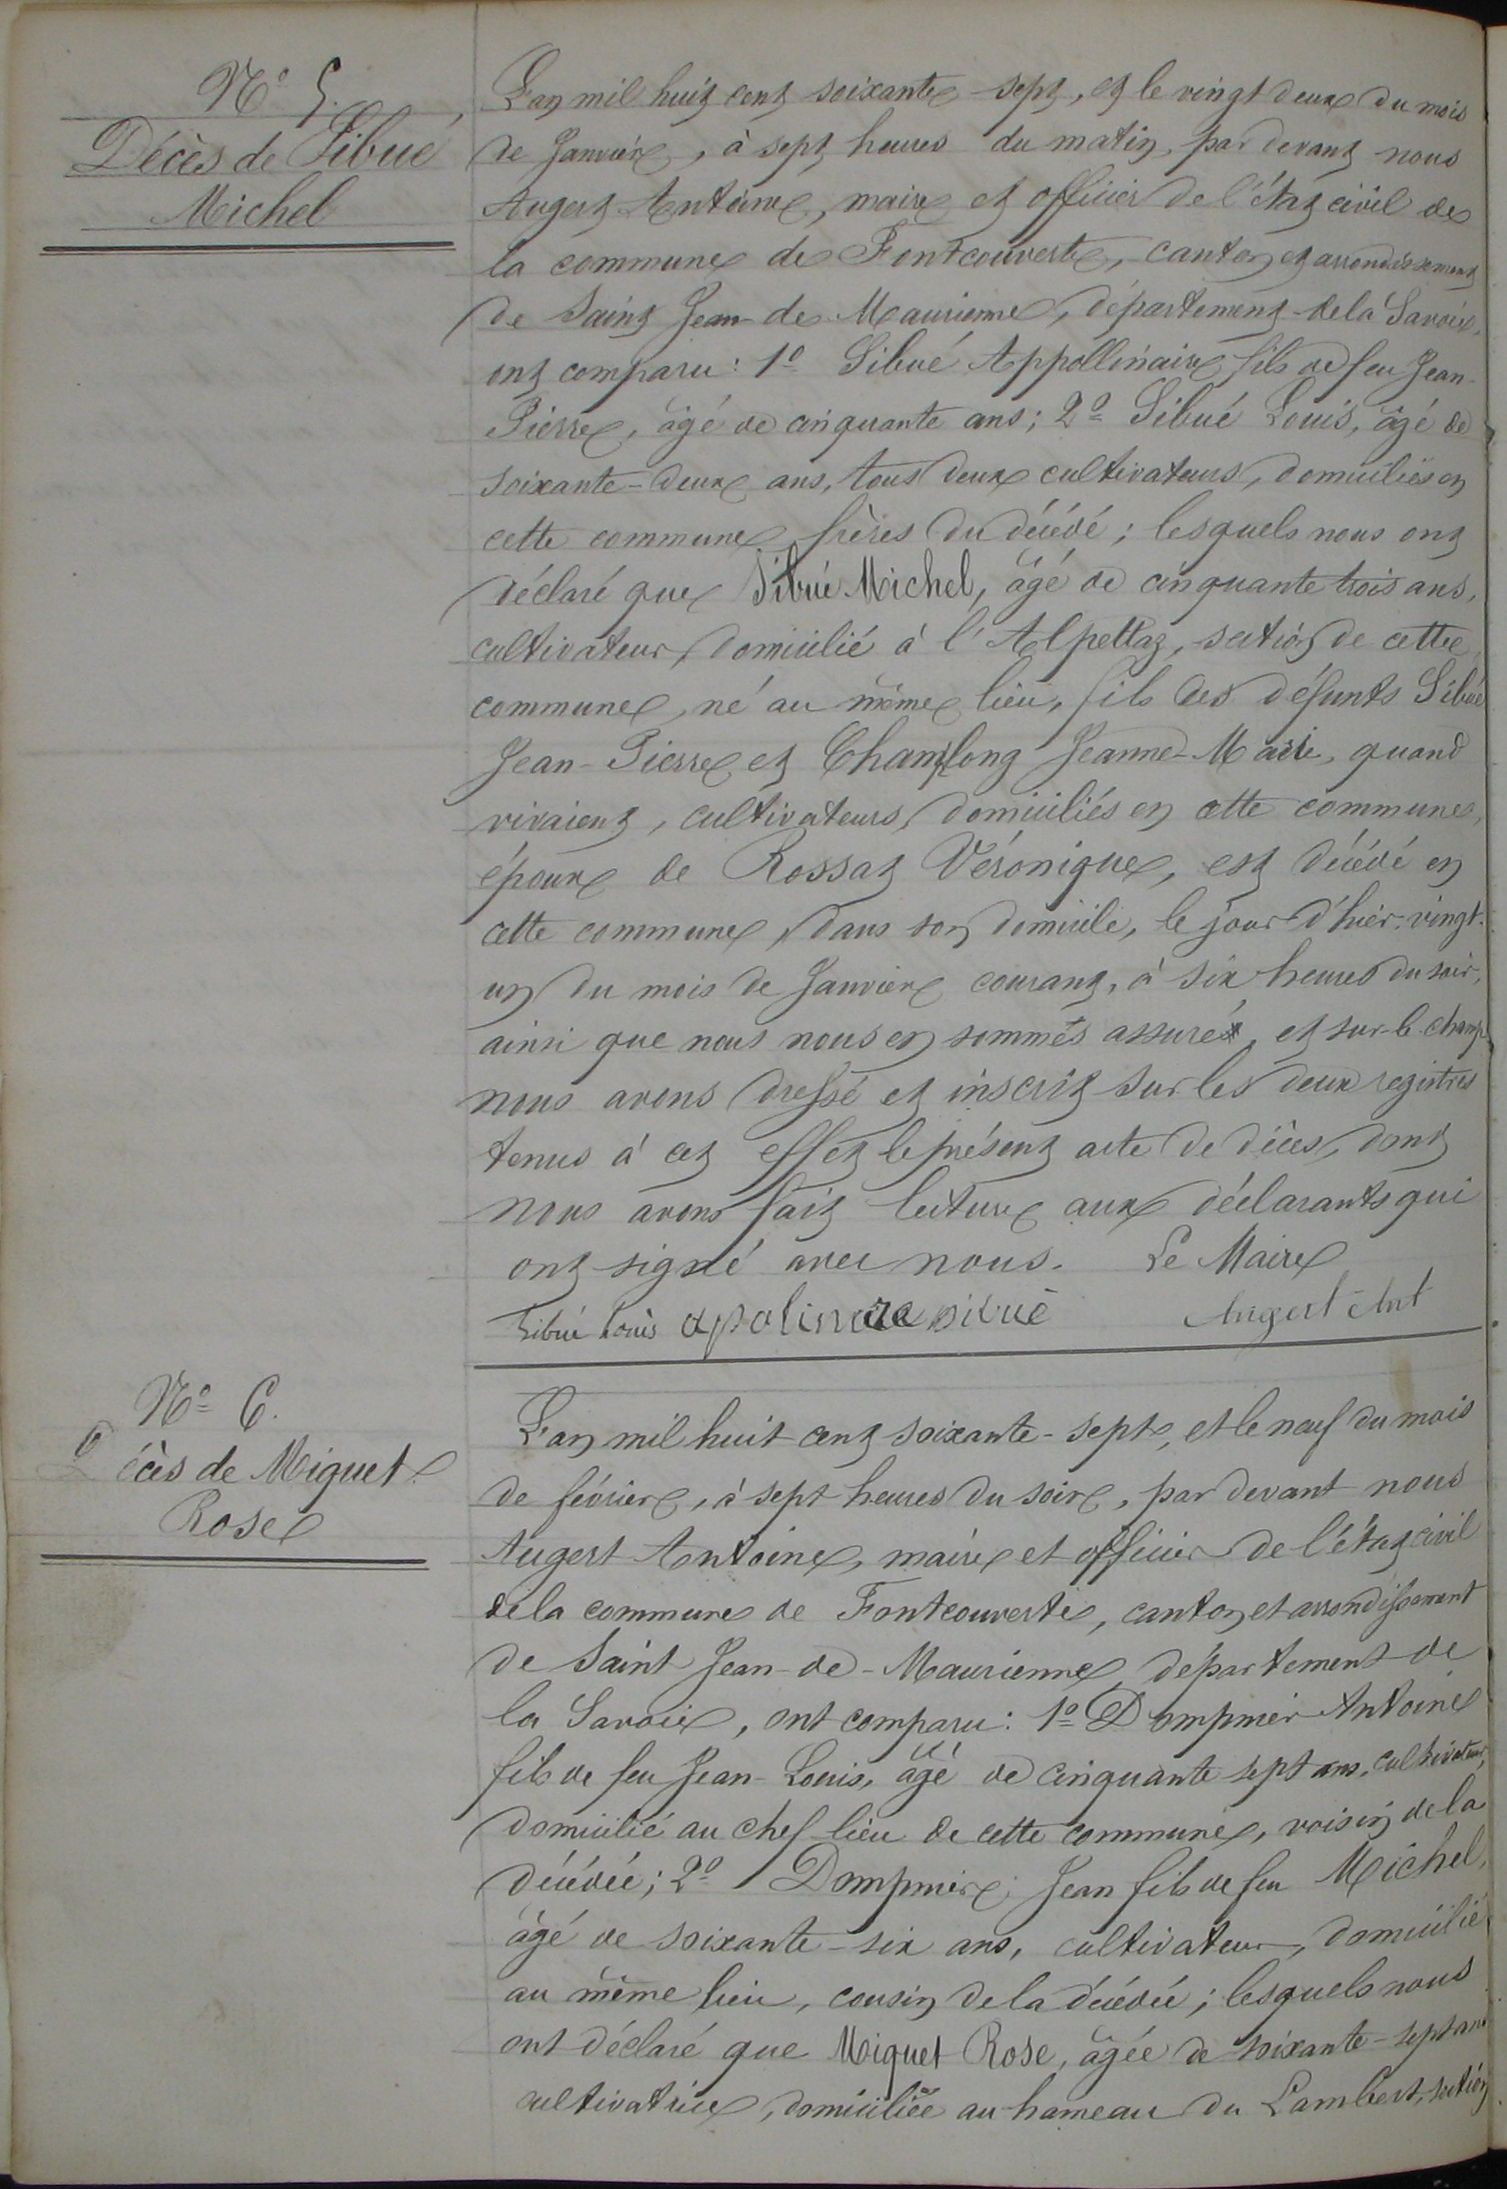 N° 5.
Décès de Sibué
Michel
L'an mil huit cent soixante-sept, et le vingt deux du mois
de Janvier, à sept heures du matin, par devant nous
Augert Antoine, maire et officier de l'état civil de
la commune de Fontcouverte, canton et arrondissement
de Saint Jean-de-Maurienne, département de la Savoie,
ont comparu: 1° Sibué Appollinaire, fils de feu Jean-
Pierre, âgé de cinquante ans; 2° Sibué Louis, âgé de
soixante-deux ans, tous deux cultivateurs, domiciliés en
cette commune, frères du décédé; lesquels nous ont
déclaré que Sibué Michel, âgé de cinquante trois ans,
cultivateur, domicilié à l'Alpettaz, section de cette
commune, né au même lieu, fils des défunts Sibué
Jean-Pierre et Champlong Jeanne-Marie, quand
vivaient, cultivateurs, domiciliés en cette commune,
époux de Rossat Véronique, est décédé en
cette commune, dans son domicile, le jour d'hier vingt-
un du mois de Janvier courant, à six heures du soir,
ainsi que nous nous en sommes assuré, et sur-le-champ
nous avons dressé et inscrit sur les deux registres
tenus à cet effet le présent acte de décès, dont
nous avons fait lecture aux déclarants qui
ont signé avec nous. Le Maire
Sibué Louis apolinare sibué Augert Ant
N° 6.
Décès de Miquet
Rose
L'an mil huit cent soixante-sept, et le neuf du mois
de février, à sept heures du soir, par devant nous
Augert Antoine, maire et officier de l'état civil
de la commune de Fontcouverte, canton et arrondissement
de Saint Jean-de-Maurienne, département de
la Savoie, ont comparu: 1° Dompnier Antoine
fils de feu Jean-Louis, âgé de cinquante sept ans, cultivateur,
domicilié au chef lieu de cette commune, voisin de la
décédée; 2° Dompnier Jean fils de feu Michel,
âgé de soixante-six ans, cultivateur, domicilié
au même lieu, cousin de la décédée; lesquels nous
ont déclaré que Miquet Rose, âgée de soixante-sept ans
cultivatrice, domiciliée au hameau du Lambert, section